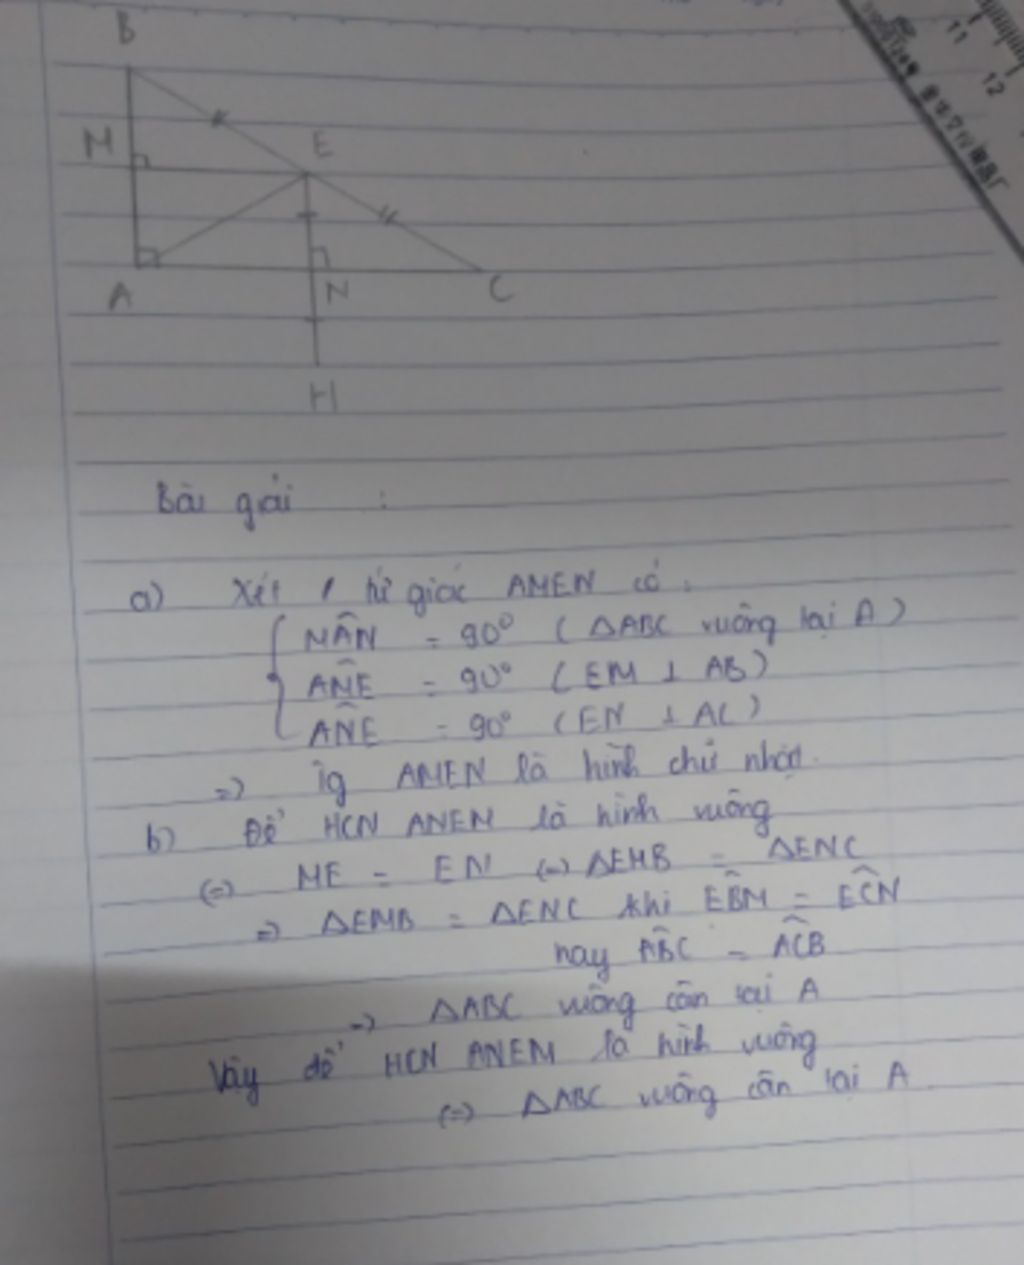 B
M
E
A
N
C
H
11
12
Bài giải :
a) Xét 1 tứ giác AMEN có:
MÂN = 90° (ΔABC vuông tại A)
AM̂E = 90° (EM ⊥ AB)
AN̂E = 90° (EN ⊥ AC)
=> tg AMEN là hình chữ nhật.
b) Để HCN ANEM là hình vuông
(=) ME = EN (=) ΔEMB = ΔENC
=> ΔEMB = ΔENC khi EB̂M = EĈN
hay AB̂C = AĈB
=> ΔABC vuông cân tại A
Vậy để HCN ANEM là hình vuông
(=) ΔABC vuông cân tại A